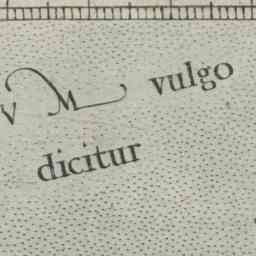 V M vulgo
dicitur